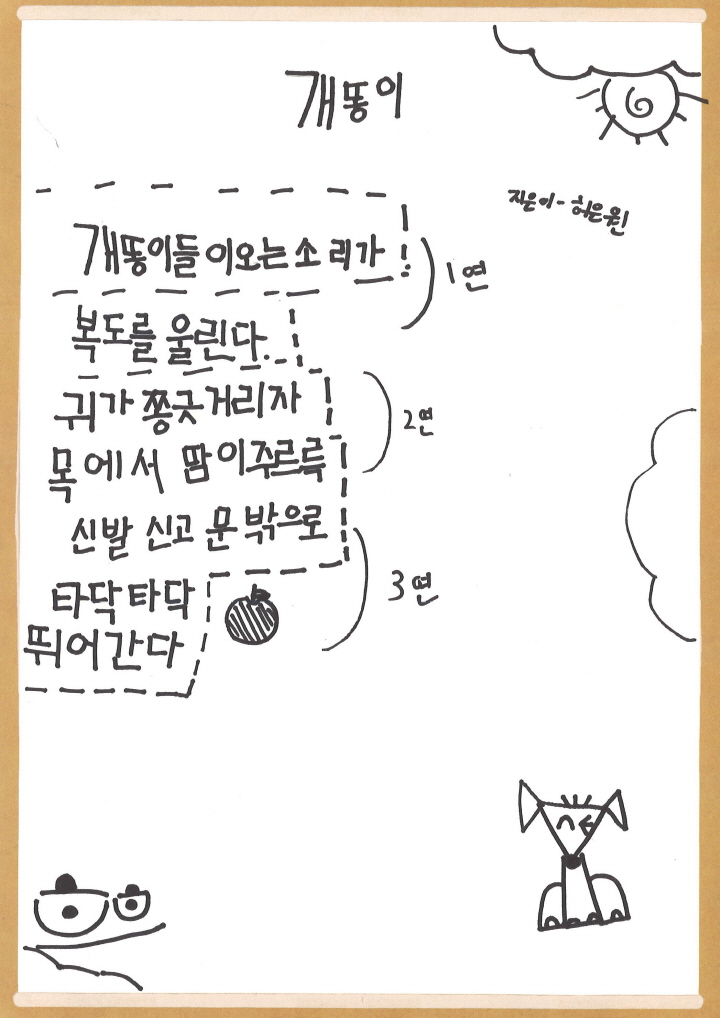 개똥이
지은이-허은원
개똥이들이오는소리가
1연
복도를 울린다.
귀가 쫑긋거리자
2연
목에서 땀이주르륵
신발 신고 문 밖으로
타닥타닥
3연
뛰어간다